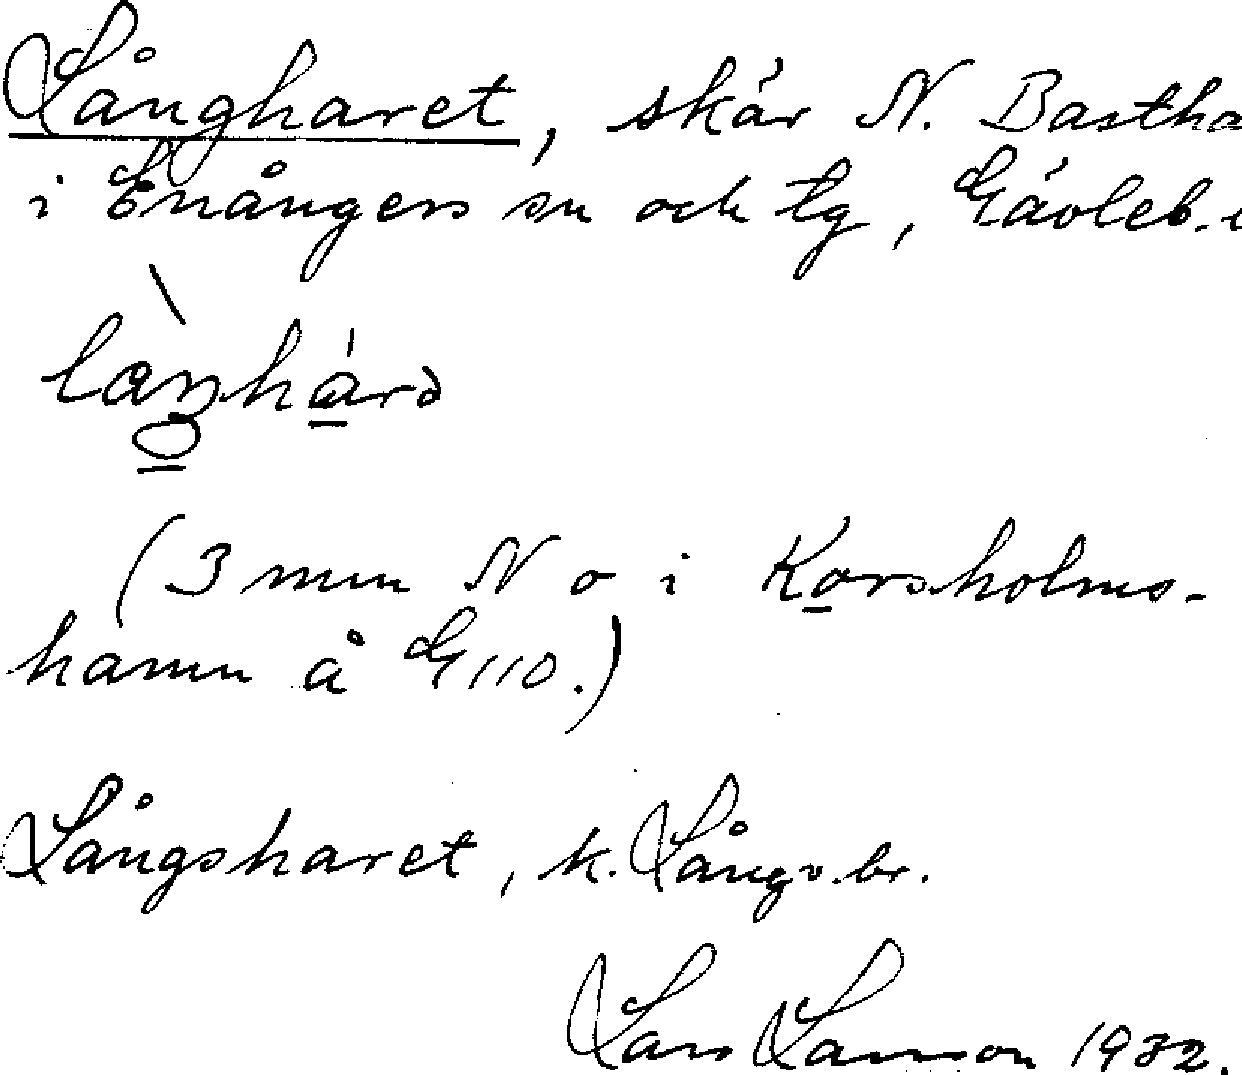 Långharet, skär N. Bastha
i Enångers sn och tg, Gävleb.
(3 mm N o i Korsholms-
hamn å G 110.)
Långsharet, k. Långv.br.
Lars Larsson 1932.